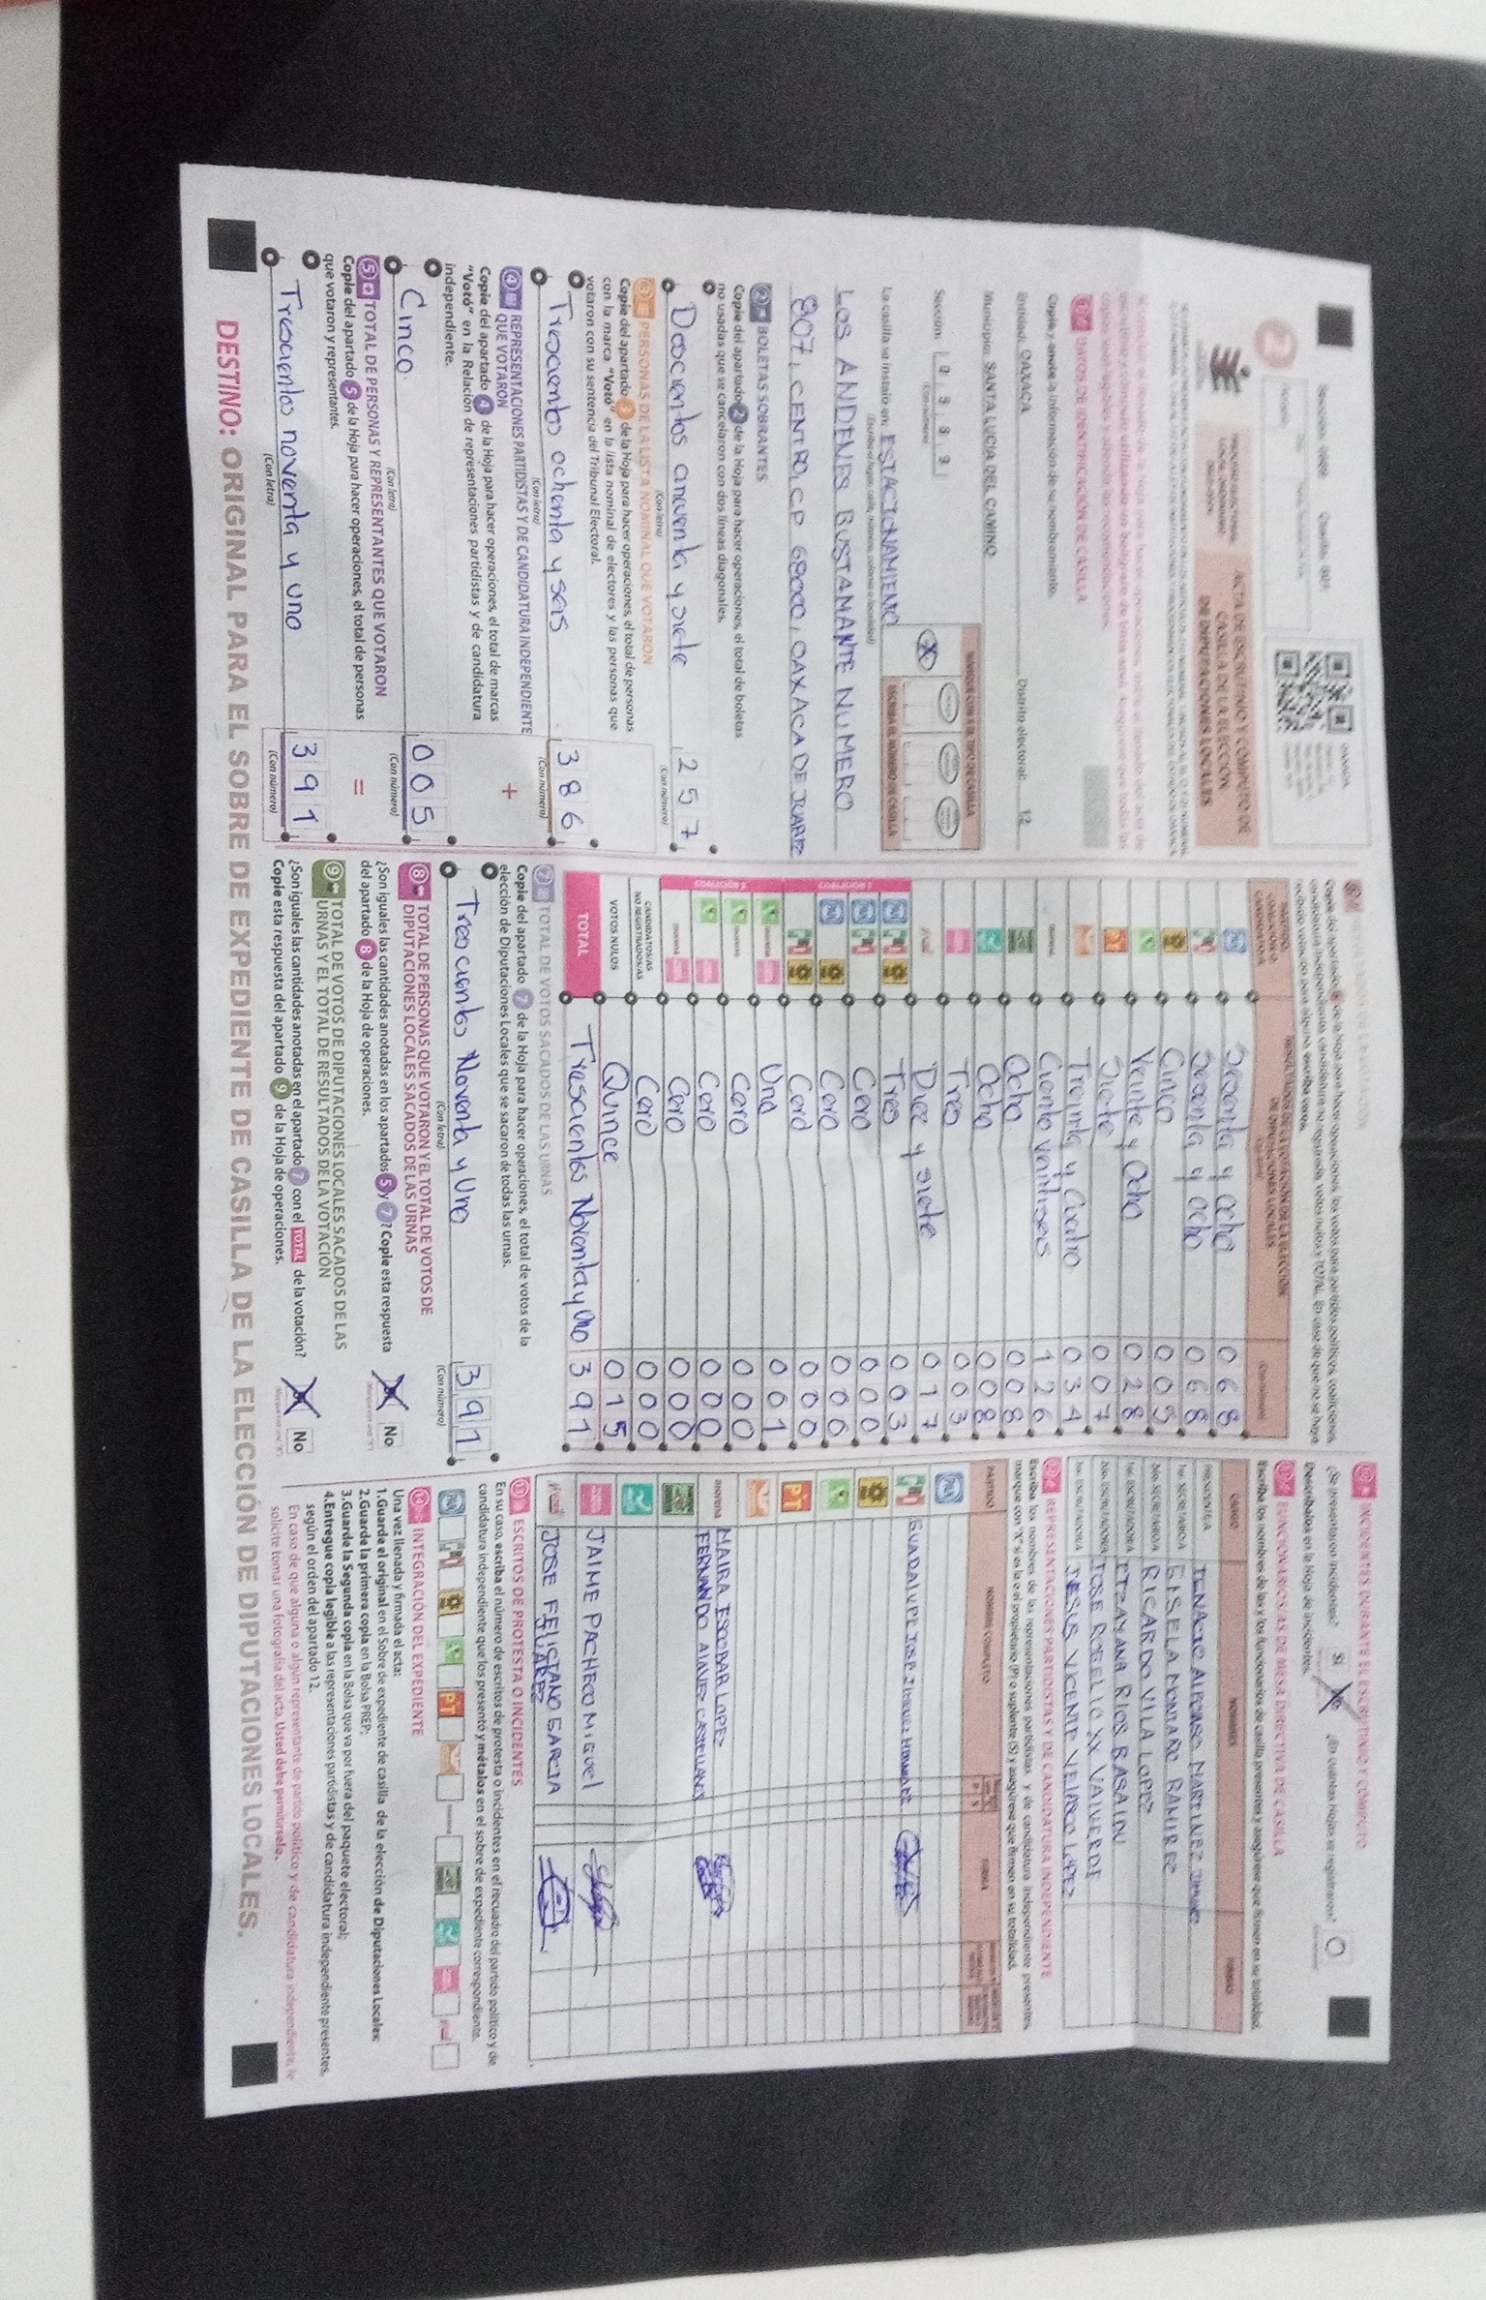 PROCESO ELECTORAL
LOCAL ORDINARIO
2023-2024
ACTA DE ESCRUTINIO Y CÓMPUTO DE
CASILLA DE LA ELECCIÓN
DE DIPUTACIONES LOCALES
OAXACA
1 DATOS DE IDENTIFICACIÓN DE CASILLA
Copie y anote la información de su nombramiento.
Entidad: OAXACA Distrito electoral: 12
Municipio: SANTA LUCIA DEL CAMINO
Sección:
(Con número)
MARQUE CON X EL TIPO DE CASILLA
ESCRIBA EL NÚMERO DE CASILLA
La casilla se instaló en: ESTACIONAMIENTO
(Escriba el lugar: calle, número, colonia o localidad)
LOS ANDENES BUSTAMANTE NUMERO
807, CENTRO, CP 68000, OAXACA DE JUAREZ
2 BOLETAS SOBRANTES
Copie del apartado 2 de la Hoja para hacer operaciones, el total de boletas
no usadas que se cancelaron con dos líneas diagonales.
Doscientos cincuenta y siete 257
(Con letra) (Con número)
3 PERSONAS DE LA LISTA NOMINAL QUE VOTARON
Copie del apartado 3 de la Hoja para hacer operaciones, el total de personas
con la marca "Votó" en la lista nominal de electores y las personas que
votaron con su sentencia del Tribunal Electoral.
Trescientos ochenta y seis 386
(Con letra) (Con número)
4 REPRESENTACIONES PARTIDISTAS Y DE CANDIDATURA INDEPENDIENTE
QUE VOTARON
+
Copie del apartado 4 de la Hoja para hacer operaciones, el total de marcas
"Votó" en la Relación de representaciones partidistas y de candidatura
independiente.
Cinco 005
(Con letra) (Con número)
5 TOTAL DE PERSONAS Y REPRESENTANTES QUE VOTARON
=
Copie del apartado 5 de la Hoja para hacer operaciones, el total de personas
que votaron y representantes.
Trescientos noventa y uno 391
(Con letra) (Con número)
Copie del apartado 6 de la Hoja para hacer operaciones, los votos para partidos políticos, coaliciones,
candidatura independiente, candidatura no registrada, votos nulos y TOTAL. En caso de que no se haya
recibido votación para alguna, escriba ceros.
RESULTADOS DE LA VOTACIÓN DE LA ELECCIÓN
DE DIPUTACIONES LOCALES
PAN Sesenta y ocho 068
PRI Sesenta y ocho 068
Cinco 005
Veinte y Ocho 028
PT Siete 007
Treinta y Cuatro 034
morena Ciento veintiseis 126
Ocho 008
Ocho 008
Tres 003
Diez y siete 017
Tres 003
Cero 000
Cero 000
Cero 000
Uno 001
Cero 000
Cero 000
Cero 000
CANDIDATOS/AS
NO REGISTRADOS/AS Cero 000
VOTOS NULOS Quince 015
TOTAL Trescientos Noventa y Uno 391
7 TOTAL DE VOTOS SACADOS DE LAS URNAS
Copie del apartado 7 de la Hoja para hacer operaciones, el total de votos de la
elección de Diputaciones Locales que se sacaron de todas las urnas.
Trescientos Noventa y Uno 391
(Con letra) (Con número)
8 TOTAL DE PERSONAS QUE VOTARON Y EL TOTAL DE VOTOS DE
DIPUTACIONES LOCALES SACADOS DE LAS URNAS
¿Son iguales las cantidades anotadas en los apartados 5 y 7? Copie esta respuesta
del apartado 8 de la Hoja de operaciones.
No
9 TOTAL DE VOTOS DE DIPUTACIONES LOCALES SACADOS DE LAS
URNAS Y EL TOTAL DE RESULTADOS DE LA VOTACIÓN
¿Son iguales las cantidades anotadas en el apartado 7 con el TOTAL de la votación?
Copie esta respuesta del apartado 9 de la Hoja de operaciones.
No
10 INCIDENTES DURANTE EL ESCRUTINIO Y CÓMPUTO
¿Se presentaron incidentes? Sí No ¿En cuántas Hojas se registraron? 0
Descríbalos en la Hoja de incidentes.
11 FUNCIONARIOS/AS DE MESA DIRECTIVA DE CASILLA
Escriba los nombres de las y los funcionarios de casilla presentes y asegúrese que firmen en su totalidad.
CARGO NOMBRES FIRMAS
PRESIDENTE/A IGNACIO ALFONSO MARTINEZ JIMENEZ
1er. SECRETARIO/A GISELA MONTAÑO RAMIREZ
2do. SECRETARIO/A RICARDO VILA LOPEZ
1er. ESCRUTADOR/A ETZAYANA RIOS BASALDU
2do. ESCRUTADOR/A JOSE ROGELIO XX VALVERDE
3er. ESCRUTADOR/A JESUS VICENTE VELASCO LOPEZ
12 REPRESENTACIONES PARTIDISTAS Y DE CANDIDATURA INDEPENDIENTE
Escriba los nombres de las representaciones partidistas y de candidatura independiente presentes,
marque con "X" si es la o el propietario (P) o suplente (S) y asegúrese que firmen en su totalidad.
PARTIDO NOMBRE COMPLETO FIRMA
PAN
PRI GUADALUPE JOSE JIMENEZ HERNANDEZ
PT
morena MAIRA ESCOBAR LOPEZ
FERNANDO ALAVEZ CASTELLANOS
JAIME PACHECO MIGUEL
JOSE FELICIANO GARCIA
JUAREZ
13 ESCRITOS DE PROTESTA O INCIDENTES
En su caso, escriba el número de escritos de protesta o incidentes en el recuadro del partido político y de
candidatura independiente que los presentó y métalos en el sobre de expediente correspondiente.
14 INTEGRACIÓN DEL EXPEDIENTE
Una vez llenada y firmada el acta:
1.Guarde el original en el Sobre de expediente de casilla de la elección de Diputaciones Locales;
2.Guarde la primera copia en la Bolsa PREP;
3.Guarde la Segunda copia en la Bolsa que va por fuera del paquete electoral;
4.Entregue copia legible a las representaciones partidistas y de candidatura independiente presentes,
según el orden del apartado 12.
En caso de que alguna o algún representante de partido político y de candidatura independiente, le
solicite tomar una fotografía del acta. Usted debe permitírselo.
DESTINO: ORIGINAL PARA EL SOBRE DE EXPEDIENTE DE CASILLA DE LA ELECCIÓN DE DIPUTACIONES LOCALES.